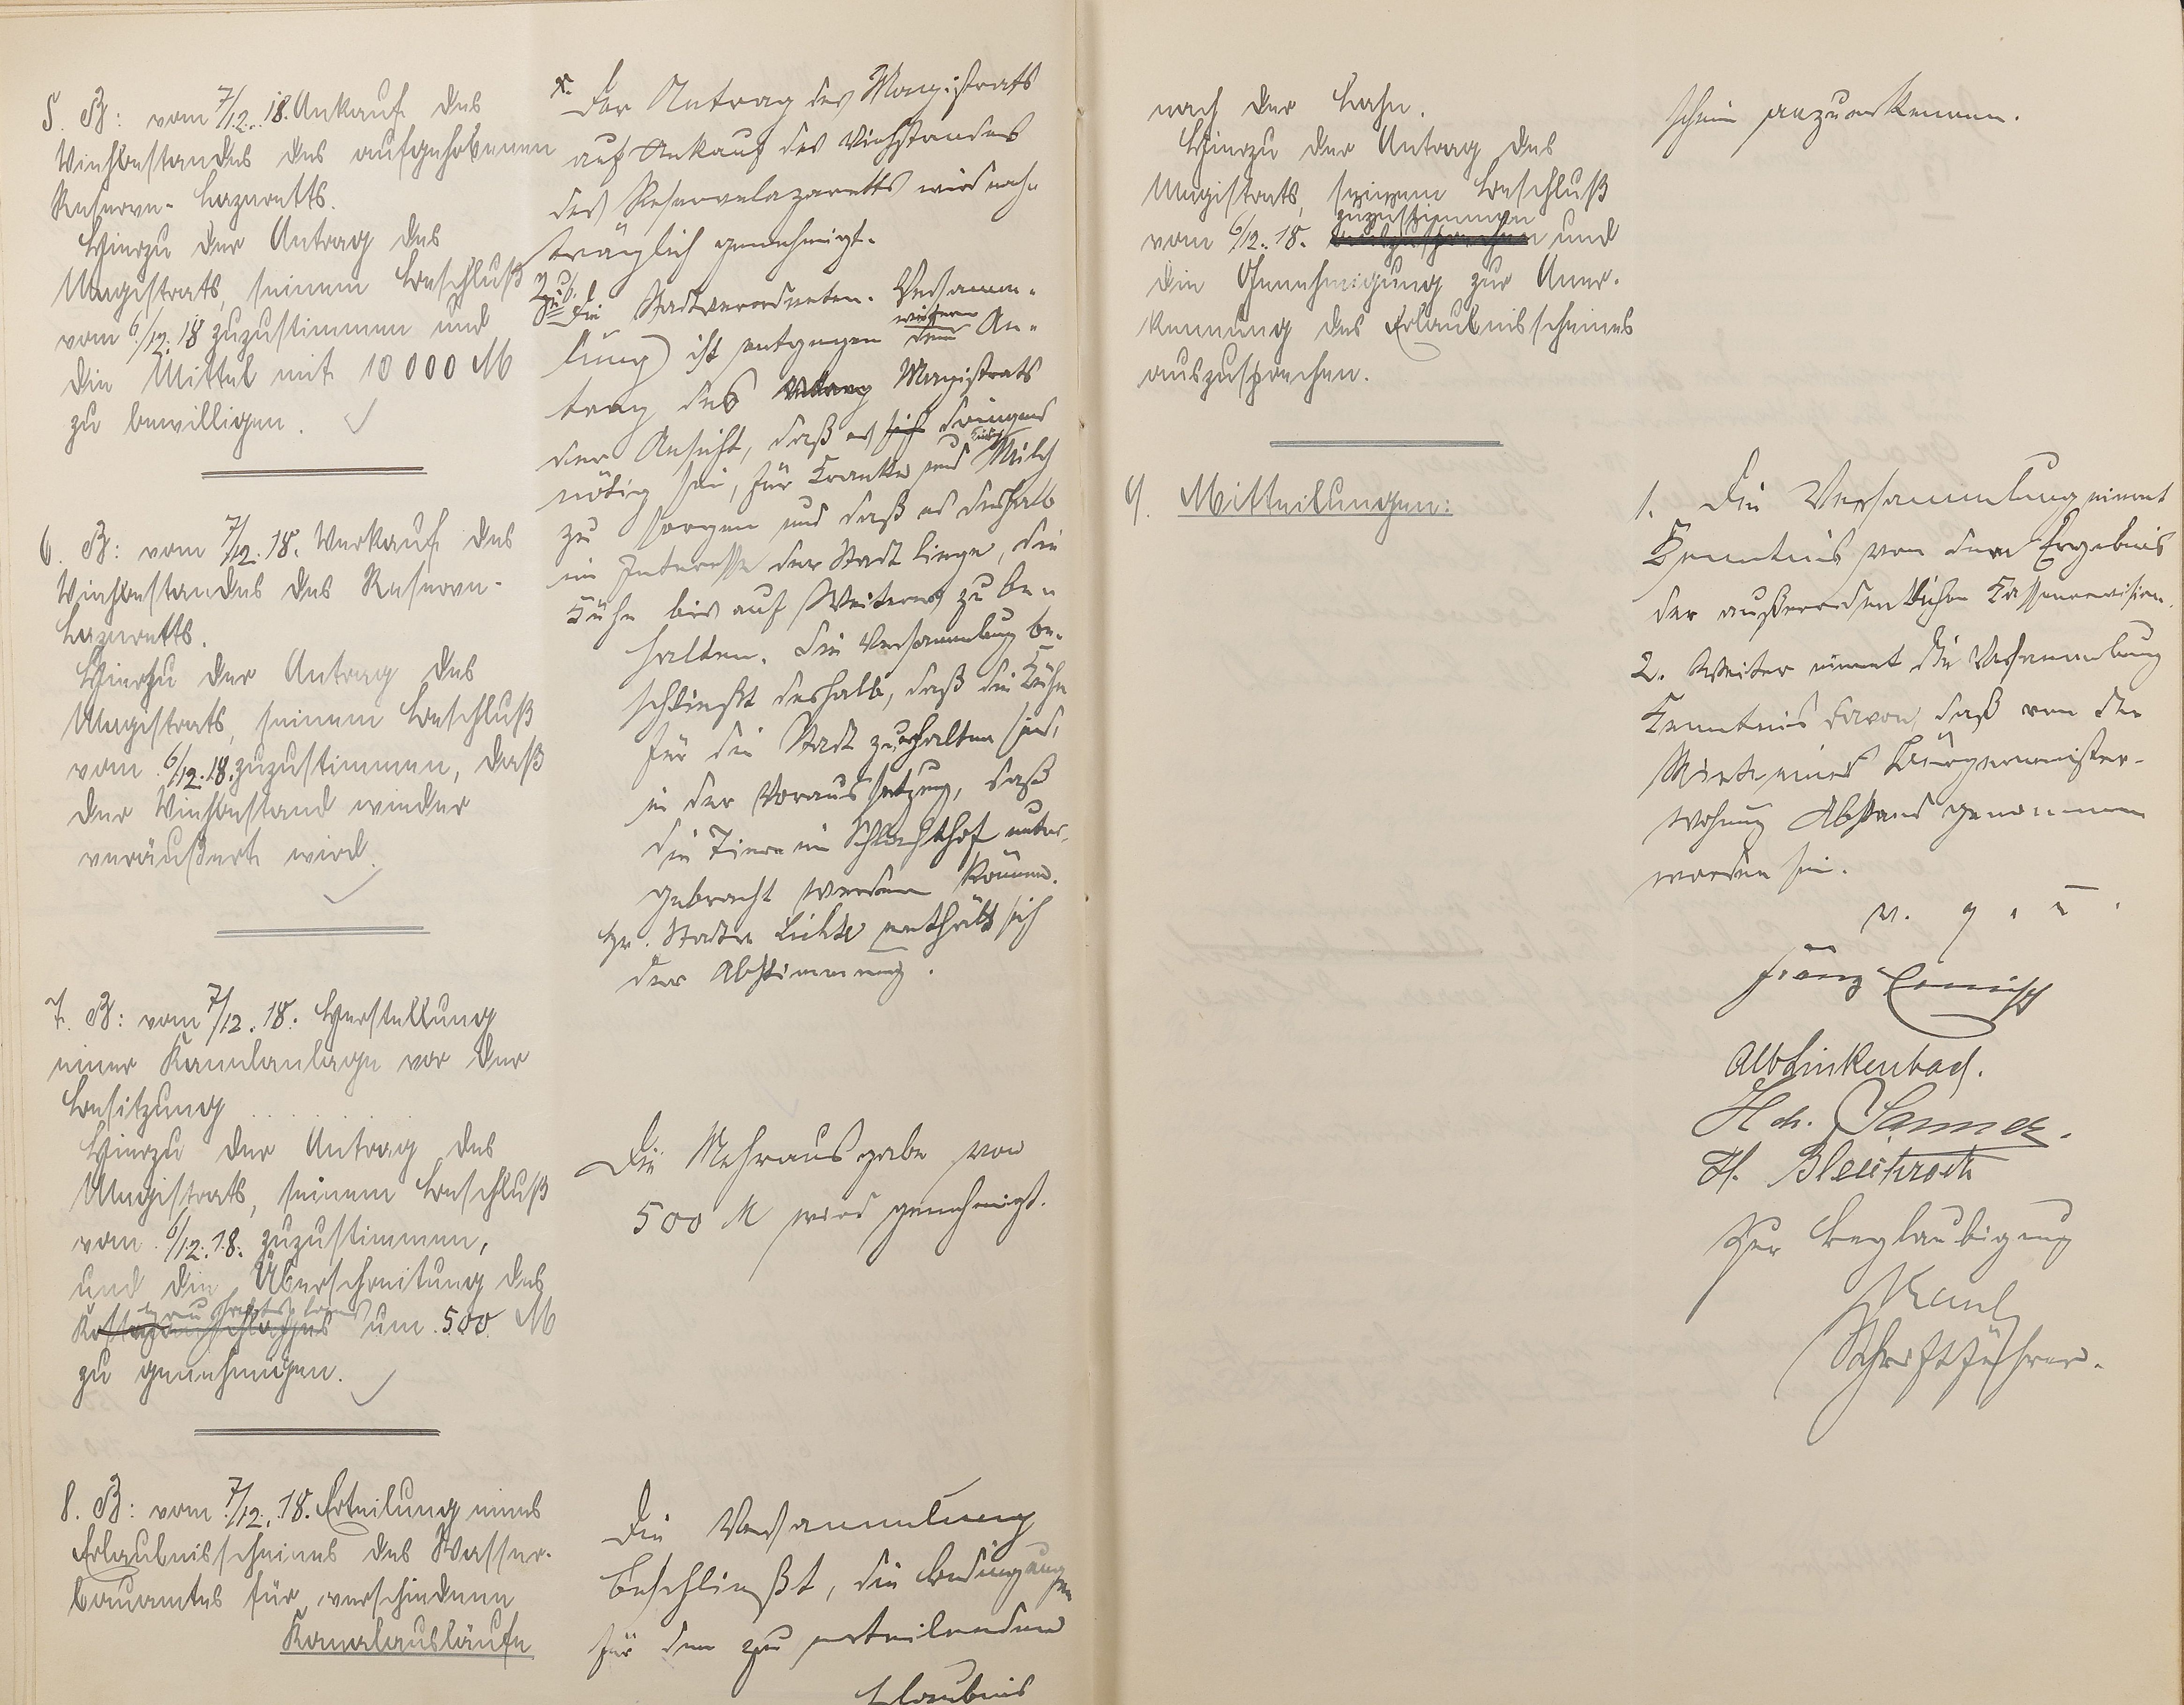 5. B: vom 7/12. 18. Ankauf des
Viehbestandes des aufgehobenen
Reserve-Lazaretts.
Hierzu der Antrag des
Magistrats, seinem Beschluß
vom 6/12. 18 zuzustimmen und
die Mittel mit 10000 M
zu bewilligen.
6. B: vom 7/12. 18. Verkauf des
Viehbestandes des Reserve-
Lazaretts.
Hierzu der Antrag des
Magistrats, seinem Beschluß
vom 6/12. 18. zuzustimmen, daß
der Viehbestand wieder
veräußert wird.
7. B: vom 7/12. 18. Herstellung
einer Kanalanlage vor der
Besitzung . . . . . . .
Hierzu der Antrag des
Magistrats, seinem Beschluß
vom 6/12. 18. zuzustimmen,
und die Überschreitung des
Kostenanschlages um 500 M
zu genehmigen.
8. B: vom 7/12. 18. Erteilung eines
Erlaubnisscheines des Wasser-
bauamtes für verschiedene
Kanalausläufe
Der Antrag des Magistrats
auf Ankauf des Viehstandes
des Reservelazaretts wird nach-
träglich genehmigt.
Zu 6.
Die Stadtverordneten-Versamm-
lung ist entgegen dem An-
trag des Magistrats
der Ansicht, daß es sich dringend
nötig sei, für Kranke und Milch
zu sorgen und daß es deshalb
im Interesse der Stadt liege, die
Kühe bis auf Weiteres zu be-
halten. Die Versammlung be-
schließt deshalb, daß die Kühe
für die Stadt zu erhalten sind,
in der Voraussetzung, daß
die Tiere im Schlachthof unter-
gebracht werden können.
Hr. Stadtv. Lichte enthält sich
der Abstimmung.
Die Mehrausgabe von
500 M wird genehmigt.
Die Versammlung
beschließt, die Bedingungen
für den zu erteilenden
Erlaubnis
nach der Lahn.
Hierzu der Antrag des
Magistrats, seinem Beschluß
zuzustimmen
vom 6/12. 18. auszusprechen und
die Genehmigung zur Aner-
kennung des Erlaubnisscheines
auszusprechen.
9. Mitteilungen:
schein anzuerkennen.
1. Die Versammlung nimmt
Kenntnis von dem Ergebnis
der außerordentlichen Kassenrevision.
2. Weiter nimmt die Versammlung
Kenntnis davon, daß von der
Miete einer Bürgermeister-
wohnung Abstand genommen
worden sei.
v. g. u.
Franz
Alb. Linkenbach.
Hch. Sanner.
H. Bleichroth
Zur Beglaubigung
Schriftführer.